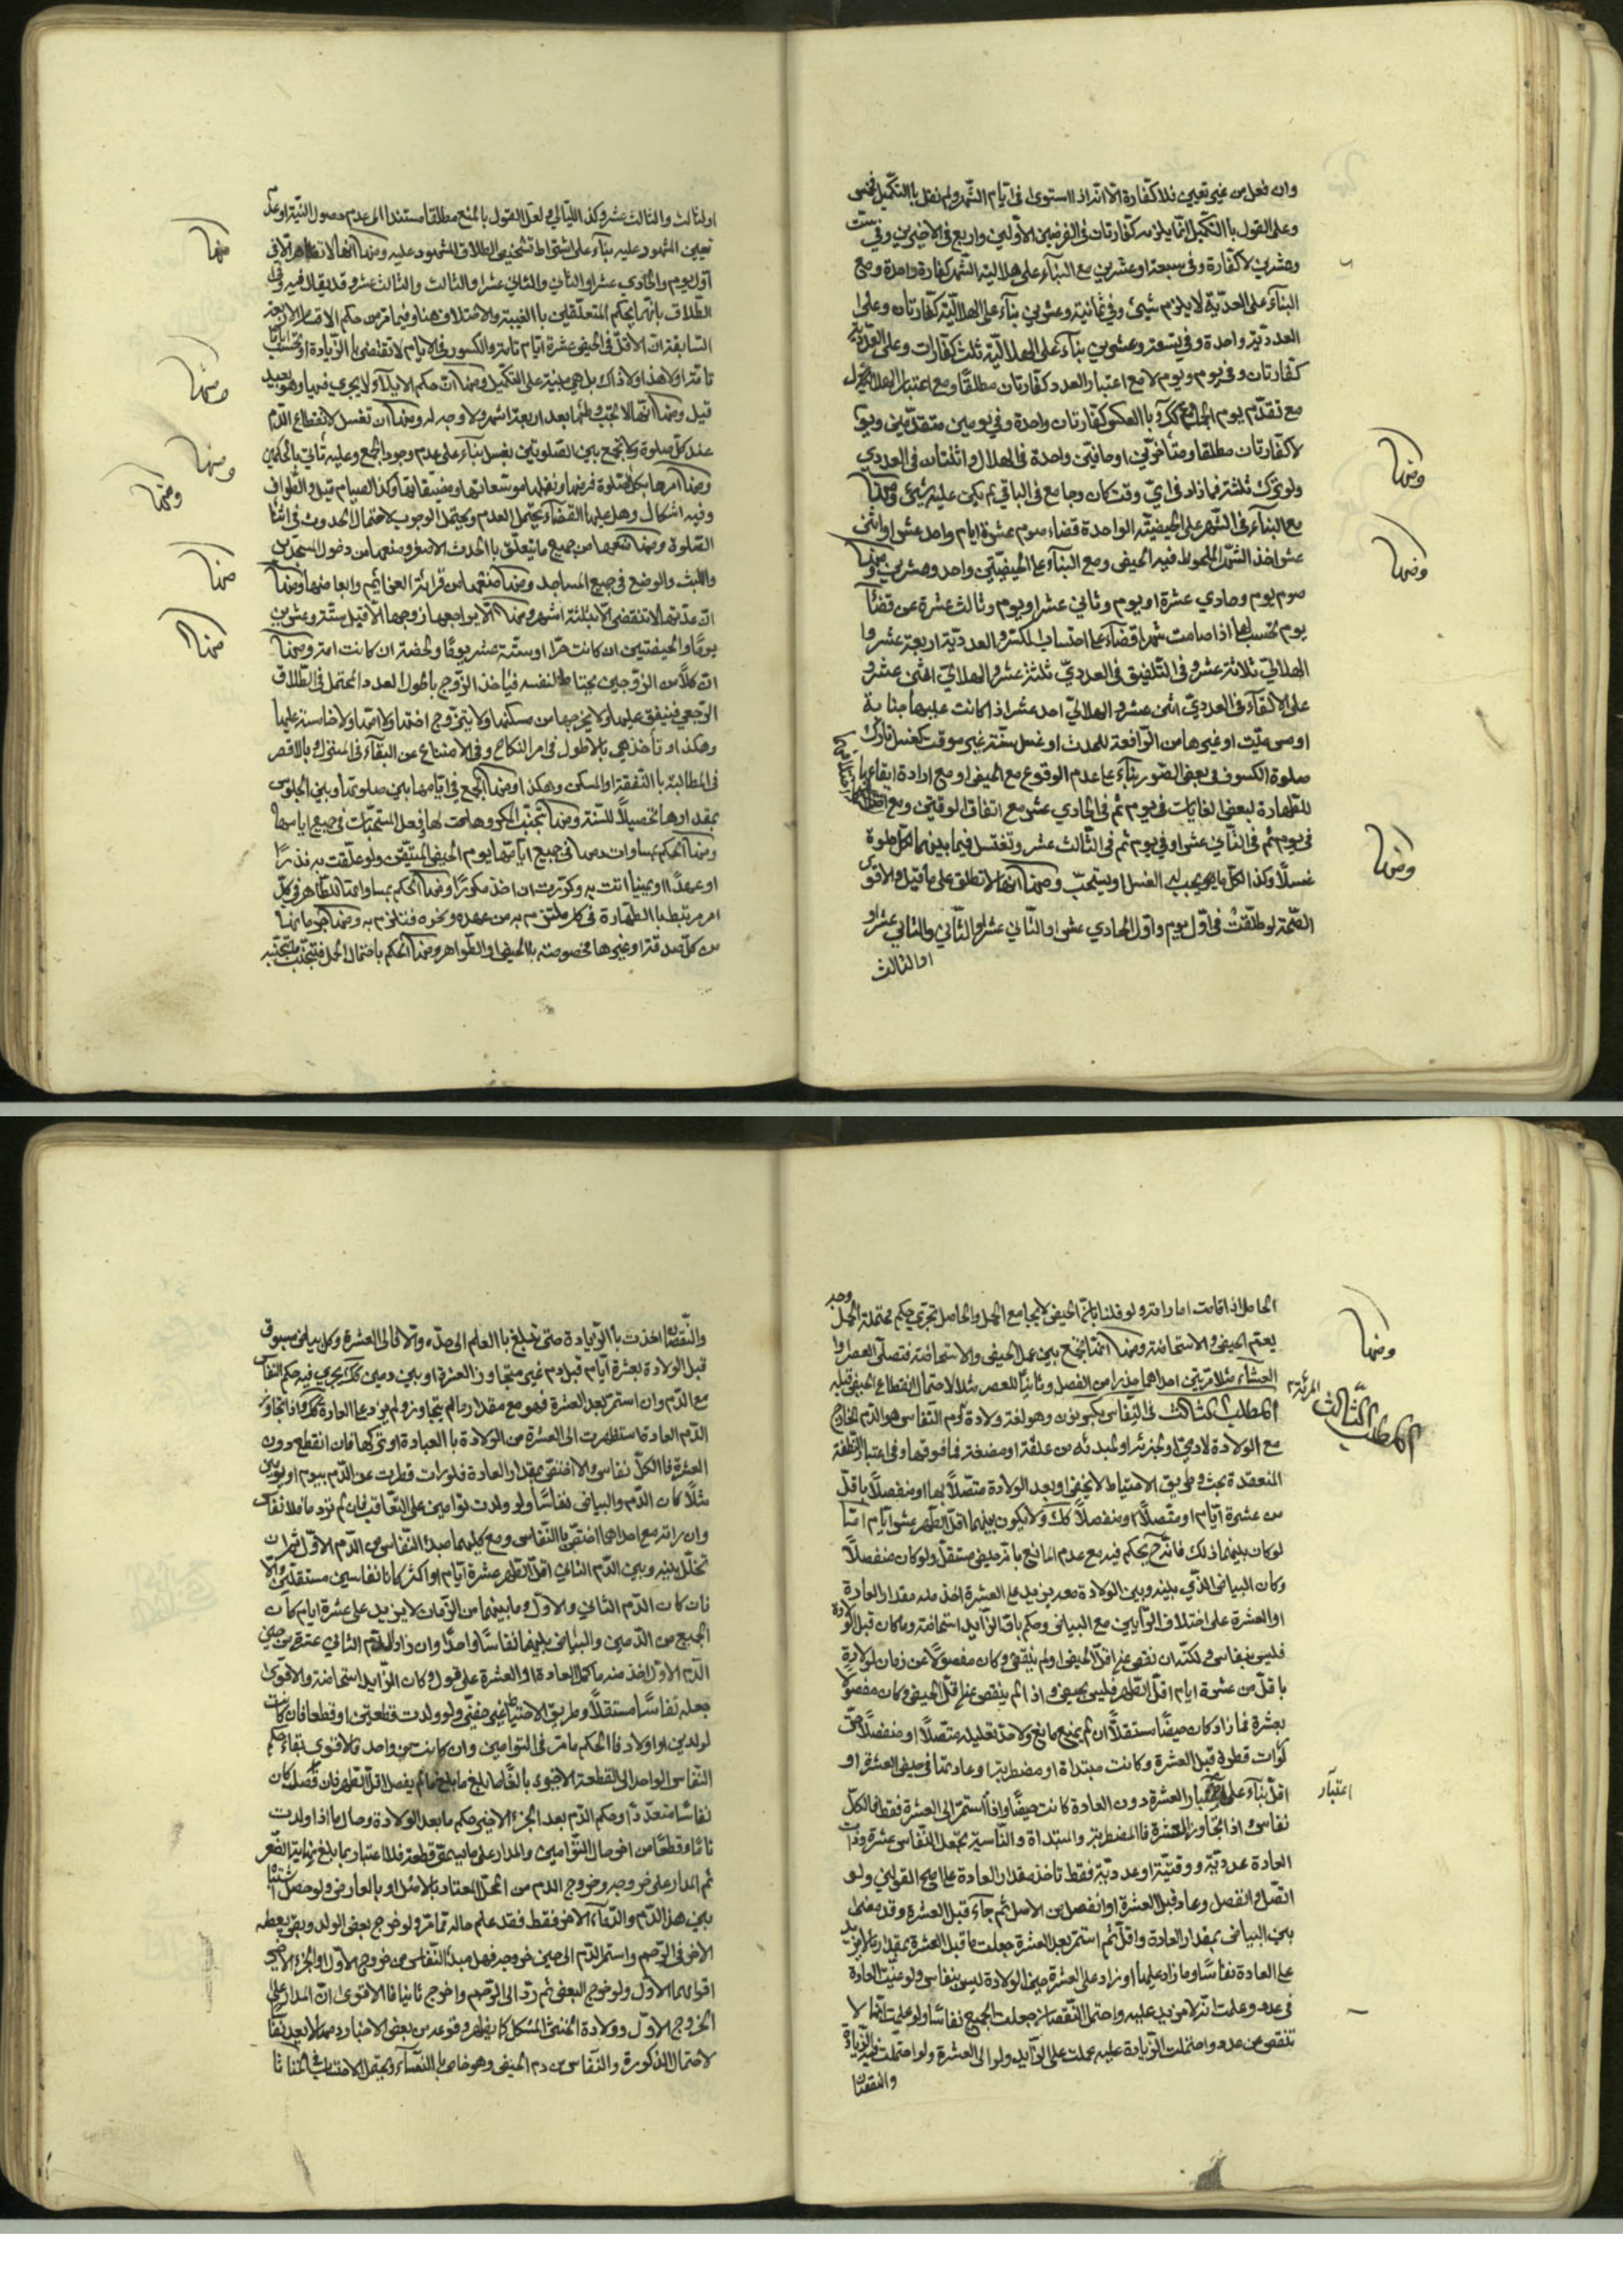 وان فعل من غير تعيين فلا كفارة الا انه اذا استوى في ايام الشهر ولم نقل بالتكميل فخمس
وعلى القول بالتكميل انما يلزمه كفارتان في الفرضين الاولين واربع في الاخيرين وفي ست
وعشرين لا كفارة وفي سبعة وعشرين مع البناء على هلالية الشهر كفارة واحدة ومع
البناء على العددية لا يلزم شيئ وفي ثمانية وعشرين بناء على الهلالية كفارتان وعلى
العددية واحدة وفي تسعة وعشرين بناء على الهلالية ثلث كفارات وعلى العددية
كفارتان وفي يوم ويوم لا مع اعتبار العدد كفارتان مطلقا ومع اعتبار الهلال
مع تقدم يوم الجماع كك وبالعكس كفارتان واحدة وفي يومين متقدمين ويو
لا كفارتان مطلقا ومتأخرين او حافتين واحدة في الهلال واثنتان في العددي
ولو ترك ثلثة فما زاد في اي وقت كان وجامع في الباقي لم يكن عليه شيئ ومنها
مع البناء في الشهر على الحيضية الواحدة قضاء صوم عشرة ايام واحد عشر او اثنى
عشر اخذ الشهر الملحوظ فيه الحيض ومع البناء على الحيضتين واحد وعشرين ومنها
صوم يوم وحادي عشرة او يوم وثاني عشر او يوم وثالث عشرة عن قضاء
يوم تحسب لها اذا صامت شهرا قضاء على احتساب الكسر والعددية اربعة عشر وا
الهلالي ثلاثة عشر وفي التلفيق في العددي ثلثة عشر والهلالي اثنى عشر و
على الالقاء في العددي اثنى عشر والهلالي احد عشر اذا كانت عليها جنابة
او مس ميت او غيرها من الرافعة للحدث او غسل سنة غير موقت كغسل تارك
صلوة الكسوف في بعض الصور بناء على عدم الوقوع مع الحيض او مع ارادة ايقاعها
للطهارة لبعض الغايات في يوم ثم في الحادي عشر مع اتفاق الوقتين ومع
في يوم ثم في الثاني عشر او في يوم ثم في الثالث عشر وتغتسل فيما بينهما لكل صلوة
غسلا وكذا لكل ما يجب له الغسل او يستحب ومنها انها لا تطلق على ما قيل والاقوى
الصحة لو طلقت في اول يوم واول الحادي عشر او الثاني عشر او الثاني والثاني عشر او
او الثالث
ومنها
ومنها
ومنها
او الثالث والثالث عشر وكذا الليالي ولعل القول بالمنع مطلقا مستندا الى عدم حصول النية او عدم
تعيين المشهود عليه بناء على اشتراط تشخيص الطلاق للشهود عليه ومنها انها لا
اول يوم والحادي عشر او الثاني والثاني عشر او الثالث والثالث عشر وقد يقال فيه وفي
الطلاق بانهما بحكم المتعلقين بالغيبة والاختلاف هنا وفيما مر من حكم الاقسام
السابقة ان الاقل في الحيض عشرة ايام تامة والكسور في الايام لا تقتضي بالزيادة او تحسب
تامة او لا هذا ولا ذاك بل هي مبنية على التكميل ومنها ان حكم الايلاء لا يجري فيها وهو بعيد
قيل ومنها انها لا تجب وطئها بعد اربعة اشهر ولا وجه له ومنها ان تغسل لانقطاع الدم
عند كل صلوة ولا تجمع بين الصلوتين بغسل بناء على عدم وجود الجمع وعليه تأتي بالحكمين
ومنها امرها بكل صلوة فرضها ونفلها موسعاتها ومضيقاتها وكذا الصيام قيل والطواف
وفيه اشكال وهل عليها القضاء يحتمل العدم ويحتمل الوجوب لاحتمال الحدوث في اثناء
الصلوة ومنها منعها من جميع ما يتعلق بالحدث الاصغر ومنعها من دخول المسجدين
واللبث والوضع في جميع المساجد ومنها منعها من قرائة العزائم وابعاضها ومنها
ان عدتها لا تنقضي الا بثلثة اشهر ومنها ان لا يراجعها زوجها الا قبل ستة وعشرين
يوما والحيضتين ان كانت حرة او ستة عشر يوما ولحظة ان كانت امة ومنها
ان كلا من الزوجين يحتاط لنفسه فيأخذ الزوج بأطول العدد المحتمل في الطلاق
الرجعي فينفق عليها ولا يخرجها من مسكنها ولا يتزوج اختها ولا امتها ولا خامسة عليها
وهكذا وتأخذ هي بالاطول في امر النكاح وفي الامتناع عن البقاء في المنزل وبالاقصر
في المطالبة بالنفقة والمسكن وهكذا ومنها الجمع في ايامها بين صلوتها وبين الجلوس
بمقدارها تحصيلا للسنة ومنها تجنب المكروهات لها وفعل المستحبات في جميع ايامها
ومنها الحكم بمساوات دمها في جميع ايامها يوم الحيض المتيقن ولو علقت به نذرا
او عهدا او يمينا اتت به وكررت ان اخذ مكررا ومنها الحكم بمساواتها للطاهر في كل
امر مرتبط بالطهارة في كل ملتزم به من عهد ونحوه فتلزم به ومنها حرمانها
من كل صدقة او غيرها مخصوصة بالحيض او الطواهر ومنها الحكم باحتمال الحمل فتجنب ما تجنبه
منها
ومنها
ومنها
ومنها
منها
منها
الحامل اذا قامت امارته ولو قلنا بان الحيض لا يجامع الحمل والحامل تجري حكم محتملة الحمل وحد
يعم الحيض والاستحاضة ومنها انها تجمع بين عمل الحيض والاستحاضة فتصلى العصر وا
العشاء مثلا مرتين احدهما من رأس الفصل وثانيا للعصر مثلا لاحتمال انقطاع الحيض قبله
المطلب الثالث في النفاس بكسر نون وهو لغة ولادة المرئة ودم النفاس هو الدم الخارج
مع الولادة لادمي او لجزئه او لمبدئه من علقة او مضغة فما فوقها وفي اعتبار النطفة
المنعقدة بحث وطريق الاحتياط لا يخفى او بعد الولادة متصلا بها او منفصلا باقل
من عشرة ايام او متصلا او منفصلا كك ولا يكون بينهما اقل الطهر عشر ايام اما
لو كان بينهما ذلك فانه ح يحكم فيه مع عدم المانع بانه حيض مستقل ولو كان منفصلا
وكان البياض الذي بينه وبين الولادة معه يزيد على العشرة اخذ منه مقدار العادة
او العشرة على اختلاف الرأيين مع البياض وحكم بان الزايد استحاضة وما كان قبل الولادة
فليس بنفاس ولكنه ان نقص عن اقل الحيض او لم ينقص وكان مفصولا عن زمان الولادة
باقل من عشرة ايام اقل الطهر فليس بحيض واذا لم ينقص عن اقل الحيض وكان مفصولا
بعشرة فما زاد كان حيضا مستقلا ان لم يمنع مانع ولاحد لقليله متصلا او منفصلا حتى
لو رأت قطرة قبل العشرة وكانت مبتدأة او مضطربة او عادتها في حيض العشرة او
اقل بناء على اعتبار العشرة دون العادة كانت حيضا واذا استمر الى العشرة فقط فالكل
نفاس واذا تجاوز العشرة فالمضطربة والمبتدأة والناسية تجعل النفاس عشرة وذات
العادة عددية ووقتية او عددية فقط تاخذ مقدار العادة على اصح القولين ولو
اتصل وانفصل وعاد قبل العشرة او انفصل من الاصل ثم جاء قبل العشرة وقد مضى
بحين البياض بمقدار العادة واقل ثم استمر بعد العشرة جعلت ما قبل العشرة بمقدار ما لا يزيد
على العادة نفاسا وما زاد عليها او زاد على العشرة من حين الولادة ليس بنفاس ولو عينت العادة
في عدد وعلمت انه لا مزيد عليه واحتمال النقصان جعلت الجميع نفاسا ولو علمت انها لا
تنقص عن عدد واحتملت الزيادة عليه عملت على الزايد ولو الى العشرة ولو احتملت فيه الزيادة
والنقصان
ومنها
المطلب الثالث
اعتبار
والنقصان اخذت بالزيادة حتى تبلغ بالعلم الى حده والا فالى العشرة وكل بياض مسبوق
قبل الولادة بعشرة ايام قبل دم غير متجاوز العشرة او بين دمين كك يجري فيه حكم النفاس
مع الدم وان استمر بعد العشرة فهو مع مقدار ما لم يتجاوز ولم يزد على العادة كك واذا تجاوز
الدم العادة استظهرت الى العشرة من الولادة بالعبادة او تركها فان انقطع دون
العشرة فالكل نفاس والا اختص بمقدار العادة فلو رات قطرت عن الدم بيوم او يومين
مثلا كان الدم والبياض نفاسا ولو ولدت توأمين على التعاقب فان لم تر دما فلا نفاس
وان رأته مع احدهما اختص بالنفاس ومع كليهما مبدأ النفاس من الدم الاول ثم ان
تخلل بينه وبين الدم الثاني اقل الطهر عشرة ايام او اكثر كانا نفاسين مستقلين والا
فان كان الدم الثاني والاول وما بينهما من الزمان لا يزيد على عشرة ايام كان
الجميع من الدمين والبياض بينهما نفاسا واحدا وان زاد الدم الثاني عشرة من حين
الدم الاول اخذ منه ما كمل العادة او العشرة على قول وكان الزايد استحاضة والاقوى
جعله نفاسا مستقلا وطريق الاحتياط غير خفي ولو ولدت قطعتين او قطعا فان كانت
لولدين او اولاد فالحكم ما مر في التوامين وان كانت من واحد فالاقوى بقاء حكم
النفاس الواحد الى القطعة الاخيرة بالغا ما بلغ ما لم يفصل اقل الطهر فان فصل كان
نفاسا متعددا وحكم الدم بعد الجزء الاخير حكم ما بعد الولادة وحال ما اذا ولدت
تاما وقطعا من اخر حال التوأمين والمدار على ما يسمى قطعة فلا اعتبار بما بلغ نهاية الصغر
ثم المدار على خروجه وخروج الدم من المحل المعتاد بالاصل او بالعارض ولو حصل اشتباه
بين هذا الدم والدماء الاخر فقط فقد علم حاله مما مر ولو خرج بعض الولد وبقى بعضه
الاخر في الرحم واستمر الدم الى حين خروجه فهل مبدأ النفاس من خروج الاول او الجزء الاخير
اقواهما الاول ولو خرج البعض ثم رد الى الرحم واخرج ثانيا فالاقوى ان المدار على
الخروج الاول وولادة الخنثى المشكل كما يظهر وقوعه من بعض الاخبار دمها لا يعد نفاسا
لاحتمال الذكورة والنفاس من دم الحيض وهو خاص بالنساء ويحتمل الاحتساب في الخناثا